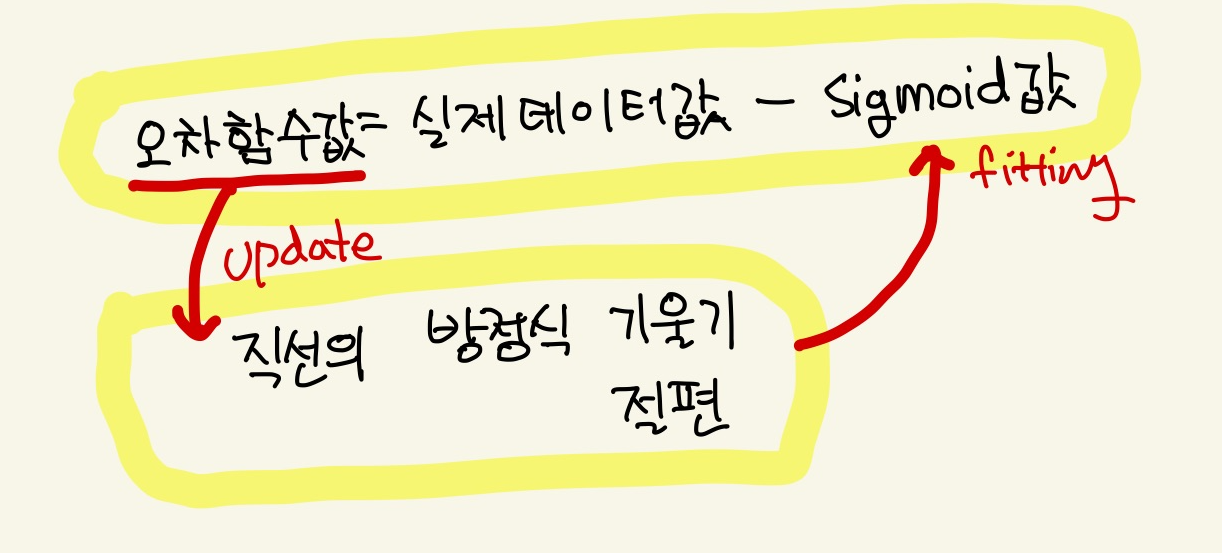 오차함수값= 실제데이터값 - Sigmoid값
fitting
update
직선의 방정식 기울기
절편